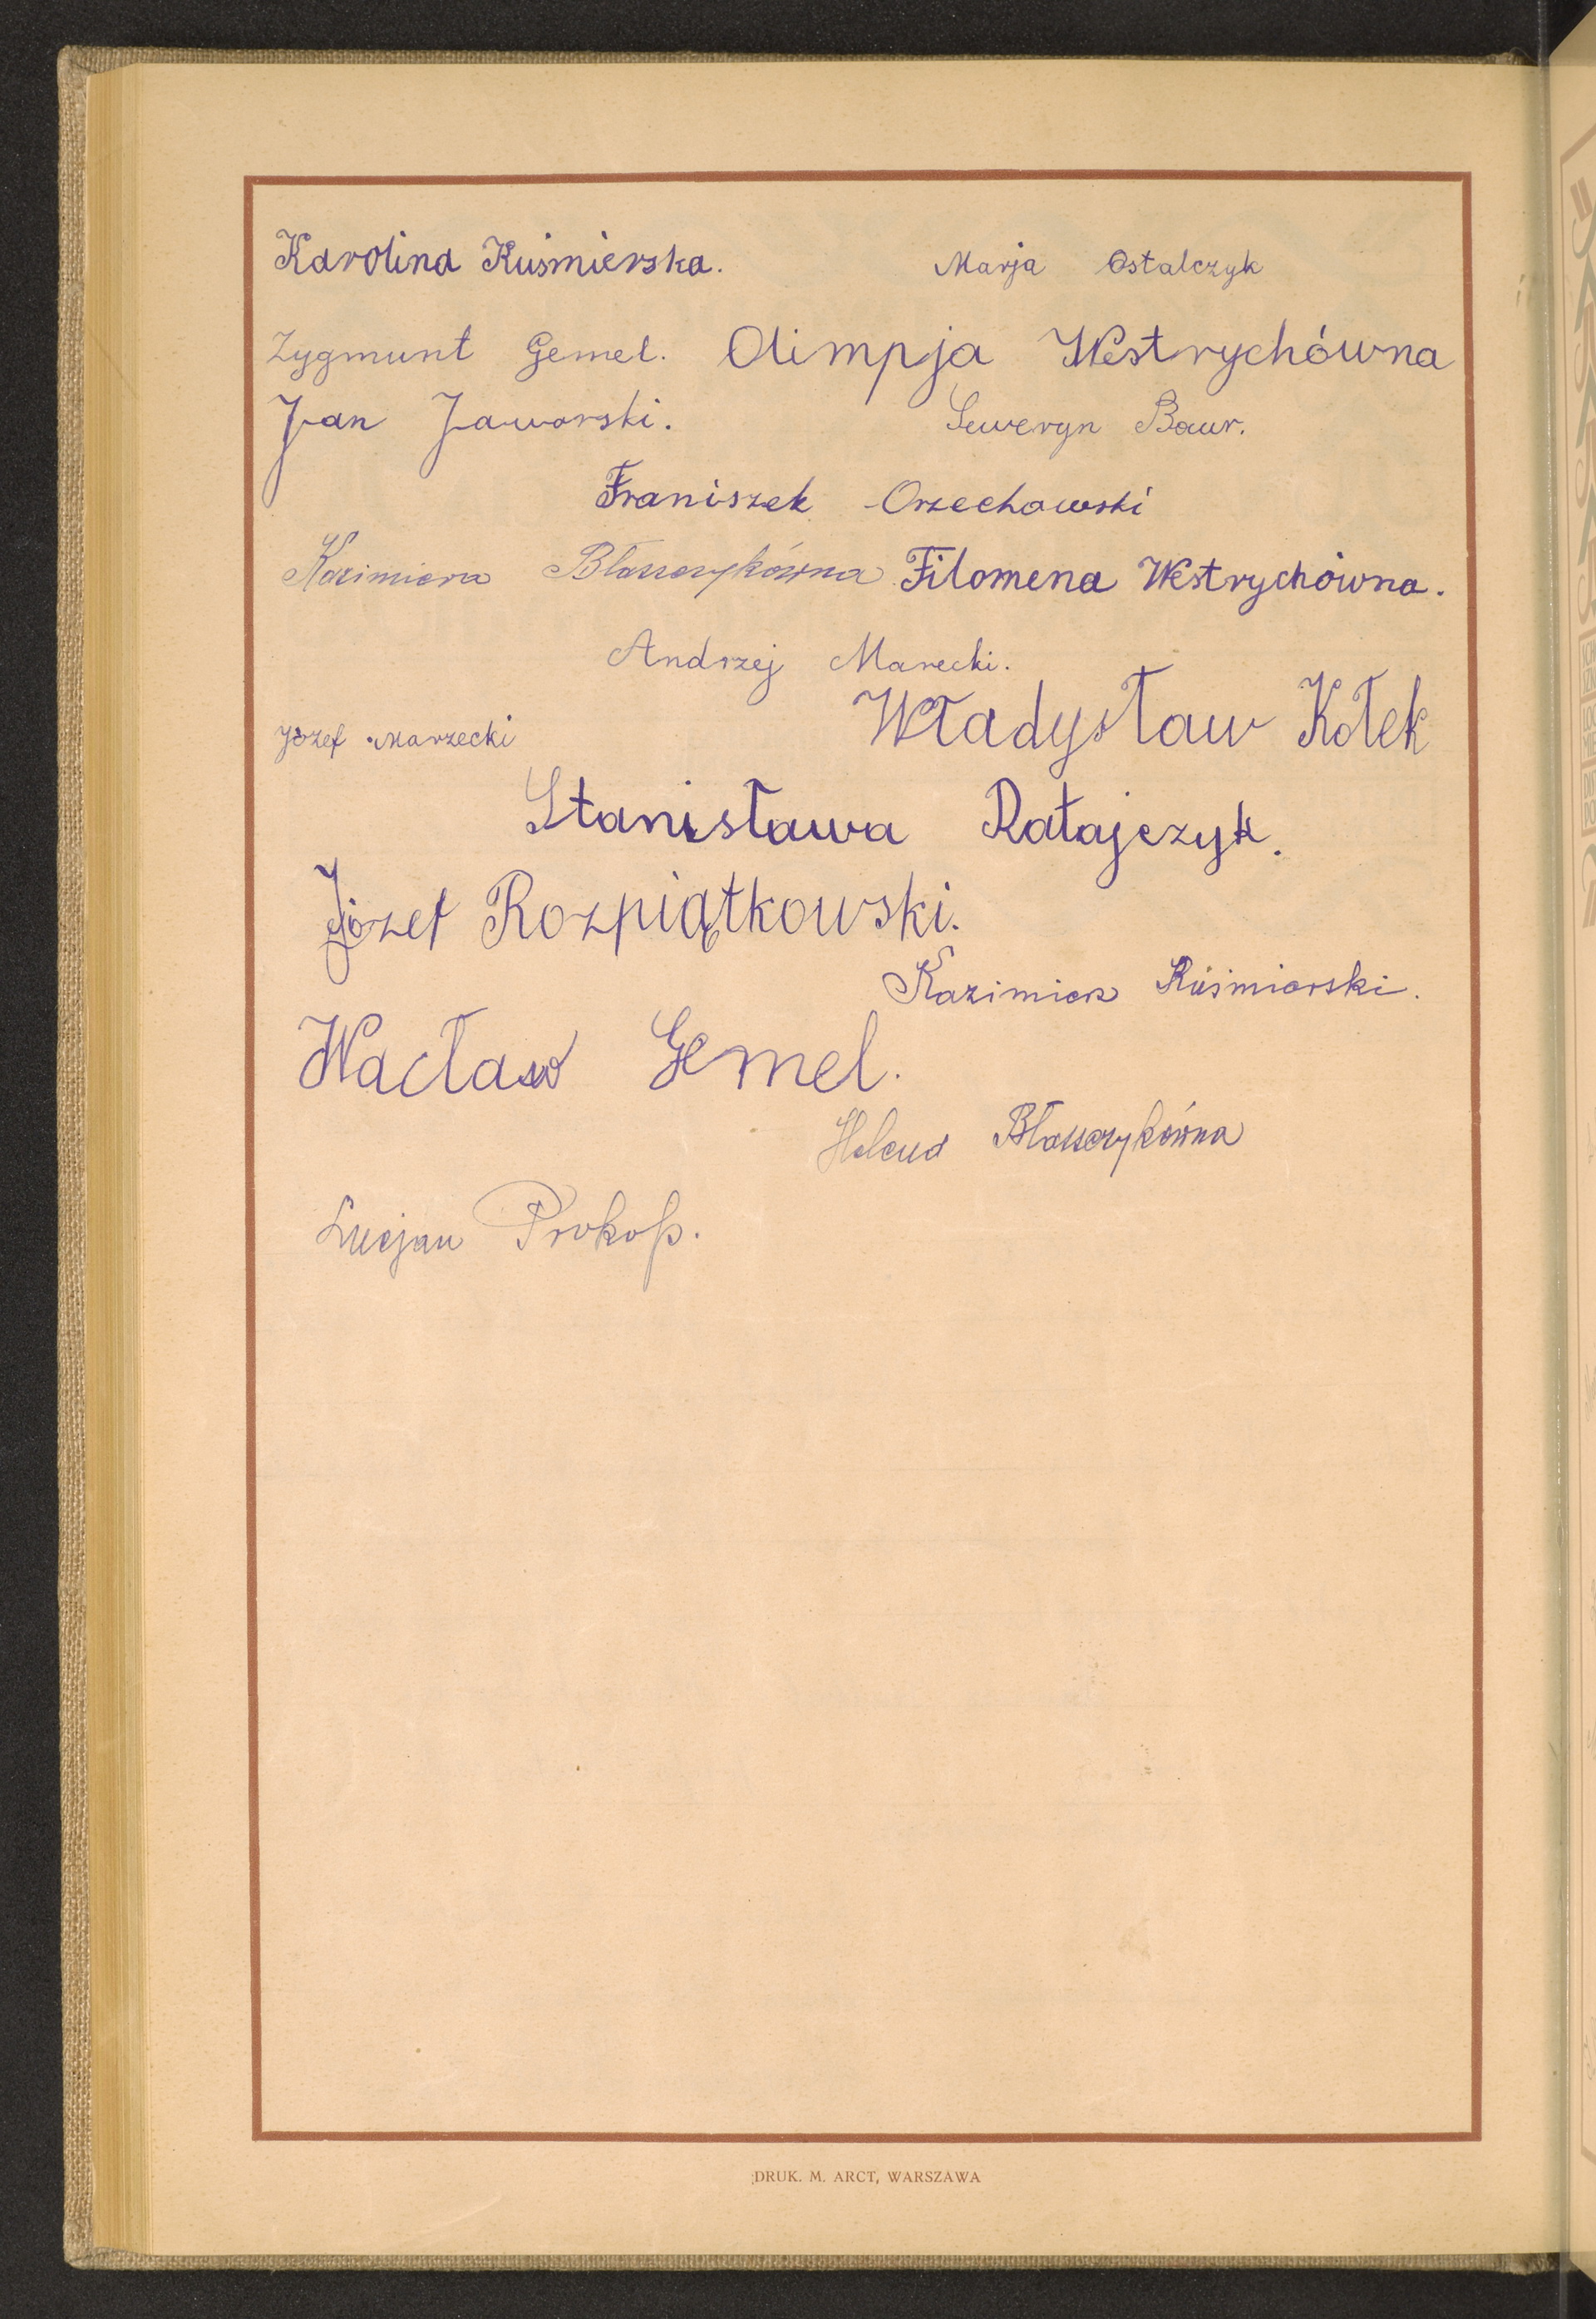 Karolina Kuśmierska. Marja Ostalczyk
Zygmunt Gemel. Olimpja Westrychówna
Jan Jaworski. Seweryn Baur.
Franiszek Orzechowski
Kazimiera Błaszczykówna Filomena Westrychówna.
Andrzej Marecki.
Józef Marzecki Władysław Kołek
Stanisława Ratajczyk.
Józef Rozpiątkowski.
Kazimierz Kuśmierski.
Wacław Gemel.
Helena Błaszczykówna
Lucjan Prokop.
DRUK. M. ARCT, WARSZAWA